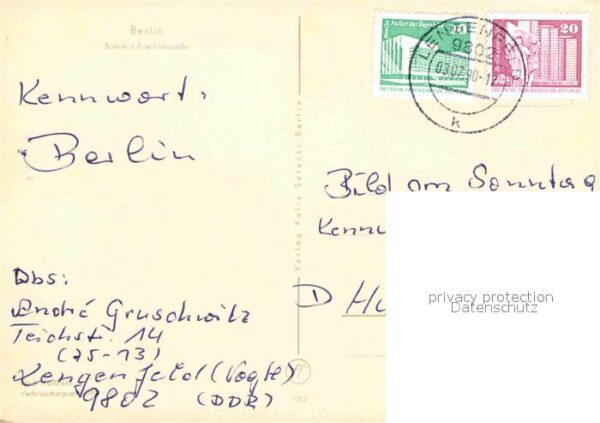 Berlin
Bahnhof Friedrichstraße
Kennwort:
Berlin
Abs:
André Gruschwitz
Teichstr. 14
(75-13)
Lengenfeld (Vogtl)
9802 (DDR)
Verbraucherpre
1012
Verlag Felix Setecki Berlin
Berlin, Palast der Republik
20
DEUTSCHE DEMOKRATISCHE REPUBLIK
LENGENFELD
9802
03.07.90-12
k
Bild am Sonntag
Kennw
D Hu
privacy protection
Datenschutz